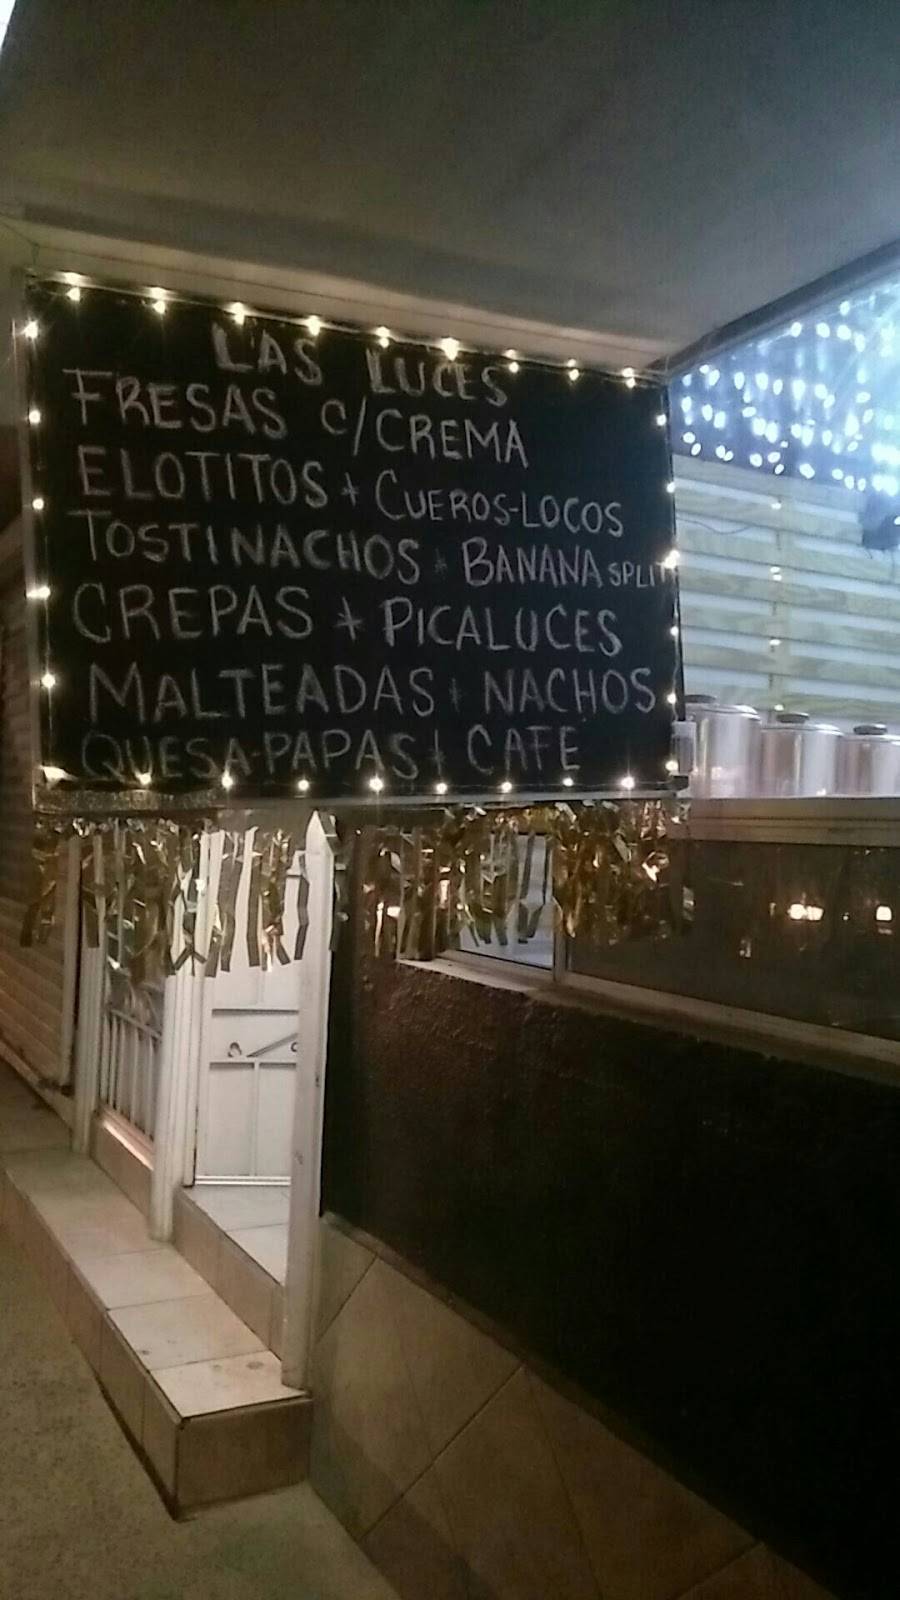 LAS LUCES
FRESAS C/CREMA
ELOTITOS * CUEROS-LOCOS
TOSTINACHOS * BANANA SPLIT
CREPAS * PICALUCES
MALTEADAS * NACHOS
QUESA-PAPAS * CAFE